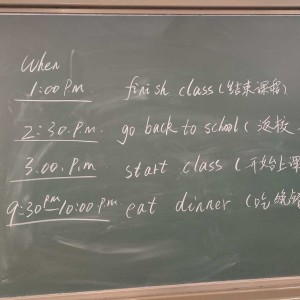 When
1:00 P.m finish class (结束课程)
2:30.P.m. go back to school (返校
3.00.P.m start class (开始上课
9:30pm—10:00 p.m eat dinner (吃晚